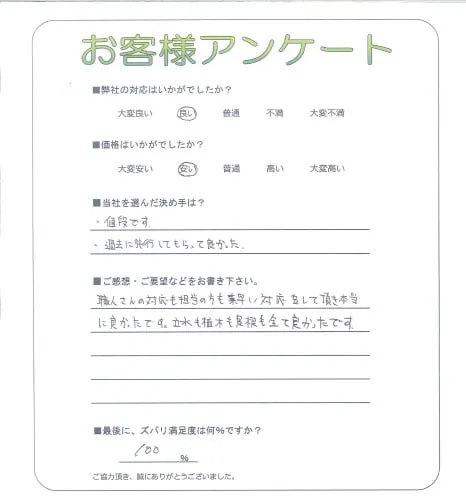 お客様アンケート
■弊社の対応はいかがでしたか？
大変良い 良い 普通 不満 大変不満
■価格はいかがでしたか？
大変安い 安い 普通 高い 大変高い
■当社を選んだ決め手は？
・値段です
・過去に発行してもらって良かった.
■ご感想・ご要望などをお書き下さい。
職人さんの対応も担当の方も素早い対応をして頂き本当
に良かったです。立水も植木も屋根も全て良かったです
■最後に、ズバリ満足度は何%ですか？
100 %
ご協力頂き、誠にありがとうございました。